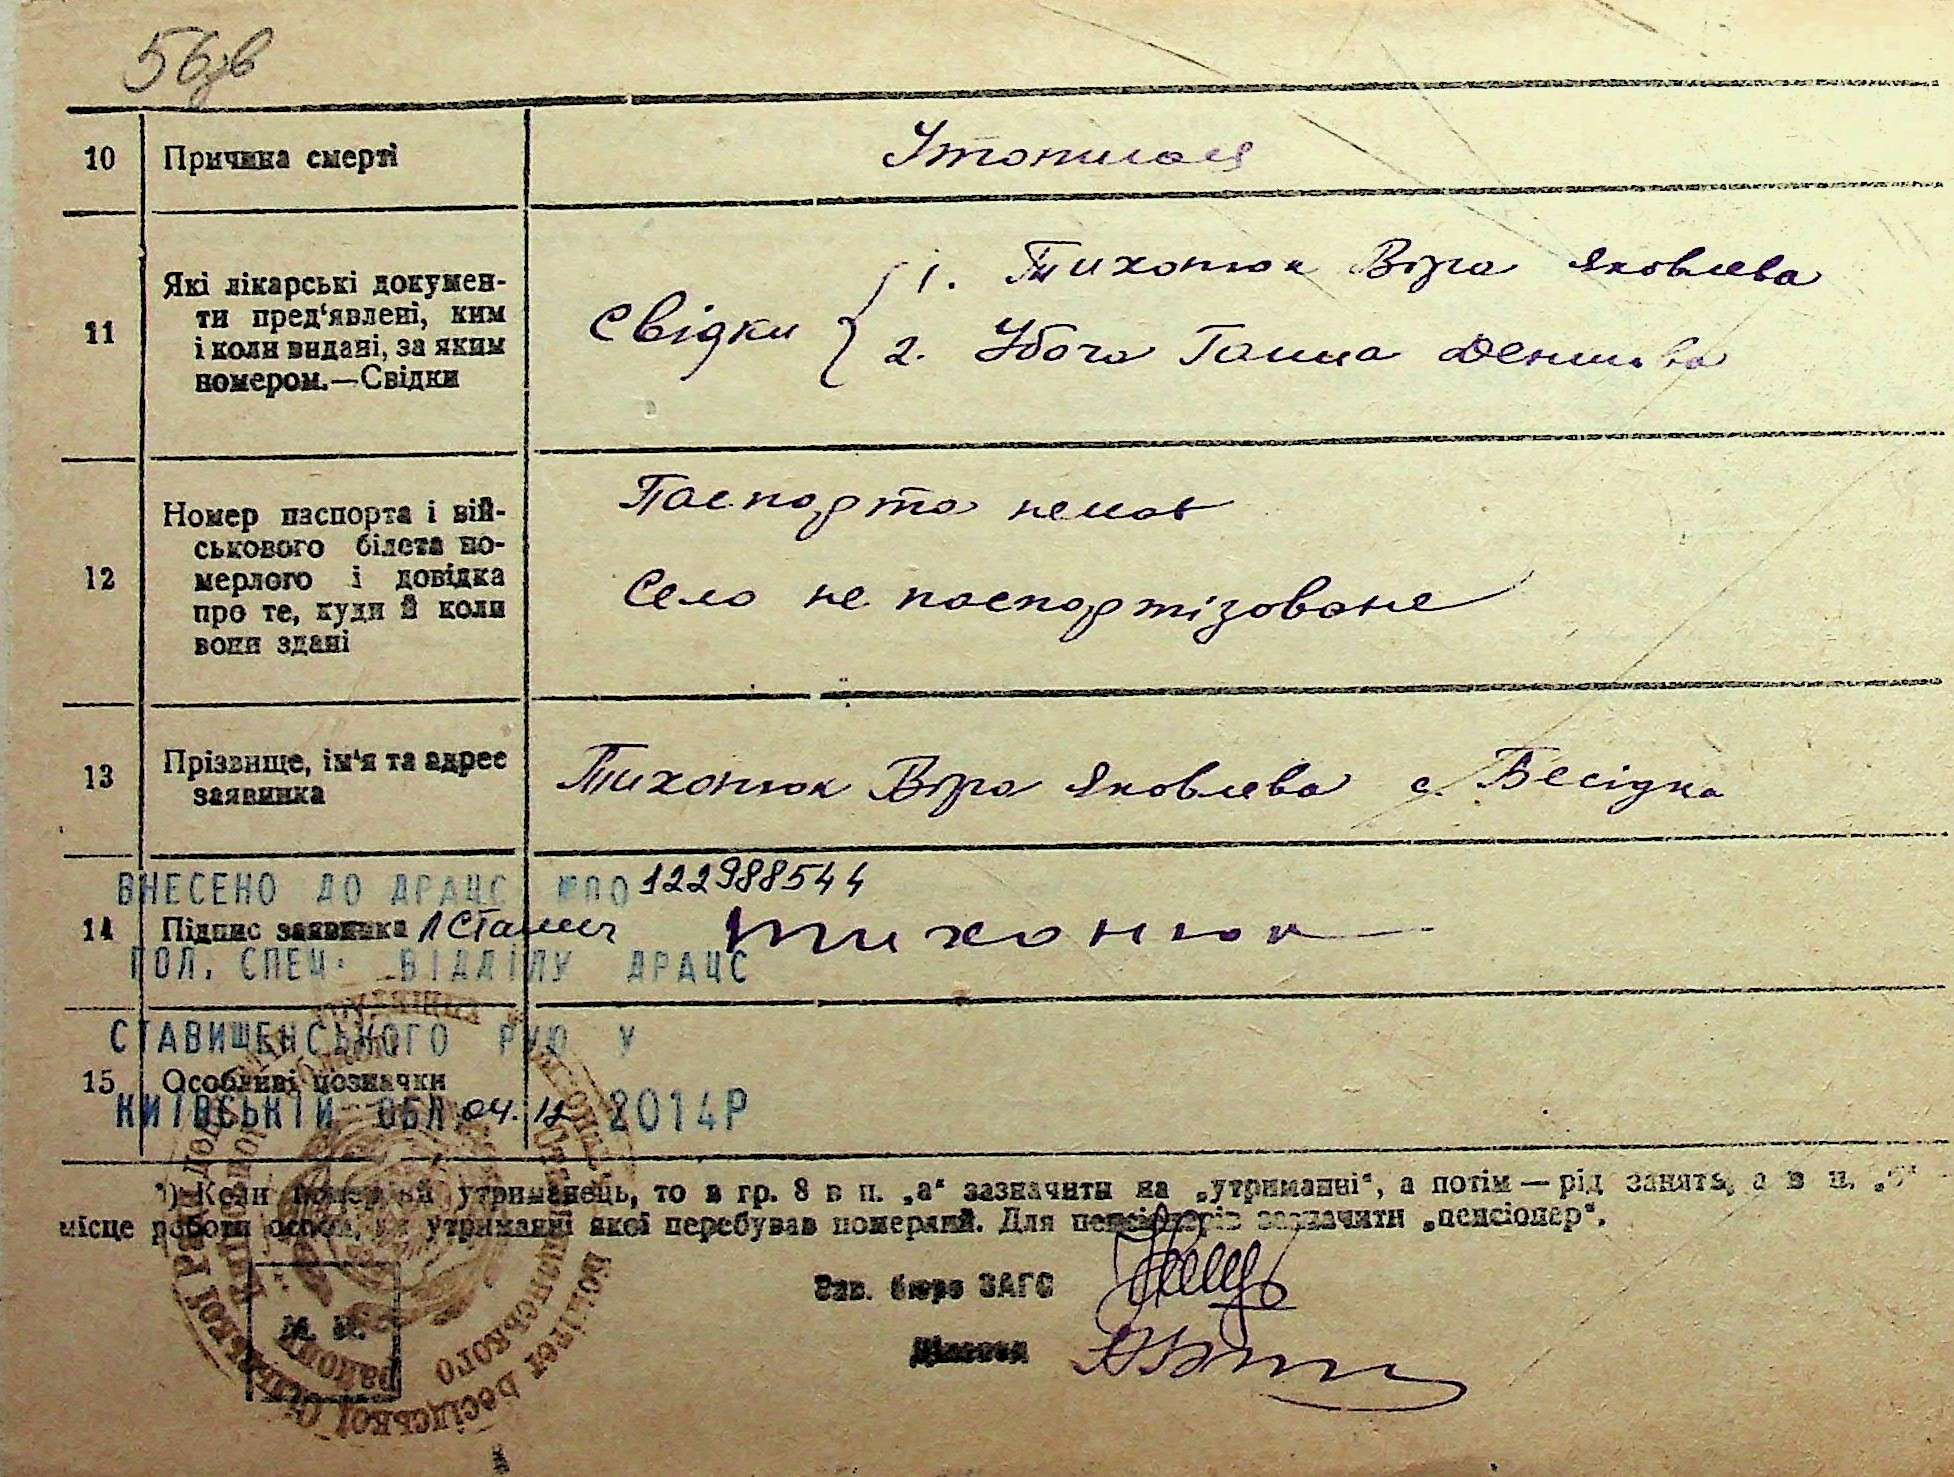 56зв
10 Причина смерті Утопилася
11 Які лікарські докумен-
ти пред'явлені, ким
і коли видані, за яким
номером.—Свідки
Свідки
1. Тихонюк Віра Яковлева
2. Убоча Ганна Денисова
12 Номер паспорта і вій-
ськового білета по-
мерлого і довідка
про те, куди й коли
вони здані
Паспорта немає
Село не паспортізоване
13 Прізвище, ім'я та адрес
заявника
Тихонюк Віра Яковлева с. Бесідка
ВНЕСЕНО ДО ДРАЦС №ПО 122988544
14 Підпис заявника Тихонюк
ПОЛ. СПЕЦ. ВІДДІЛУ ДРАЦС
СТАВИЩЕНСЬКОГО РУЮ У
15 Особливі позначки
КИЇВСЬКІЙ ОБЛ. 04.12 2014Р
¹) Коли померлий утриманець, то в гр. 8 в п. „а“ зазначити на „утриманні“, а потім — рід занять, а в п. „б“ —
місце роботи особи, на утриманні якої перебував померлий. Для пенсіонерів зазначити „пенсіонер“.
Зав. бюро ЗАГС
Діловод
М. П.